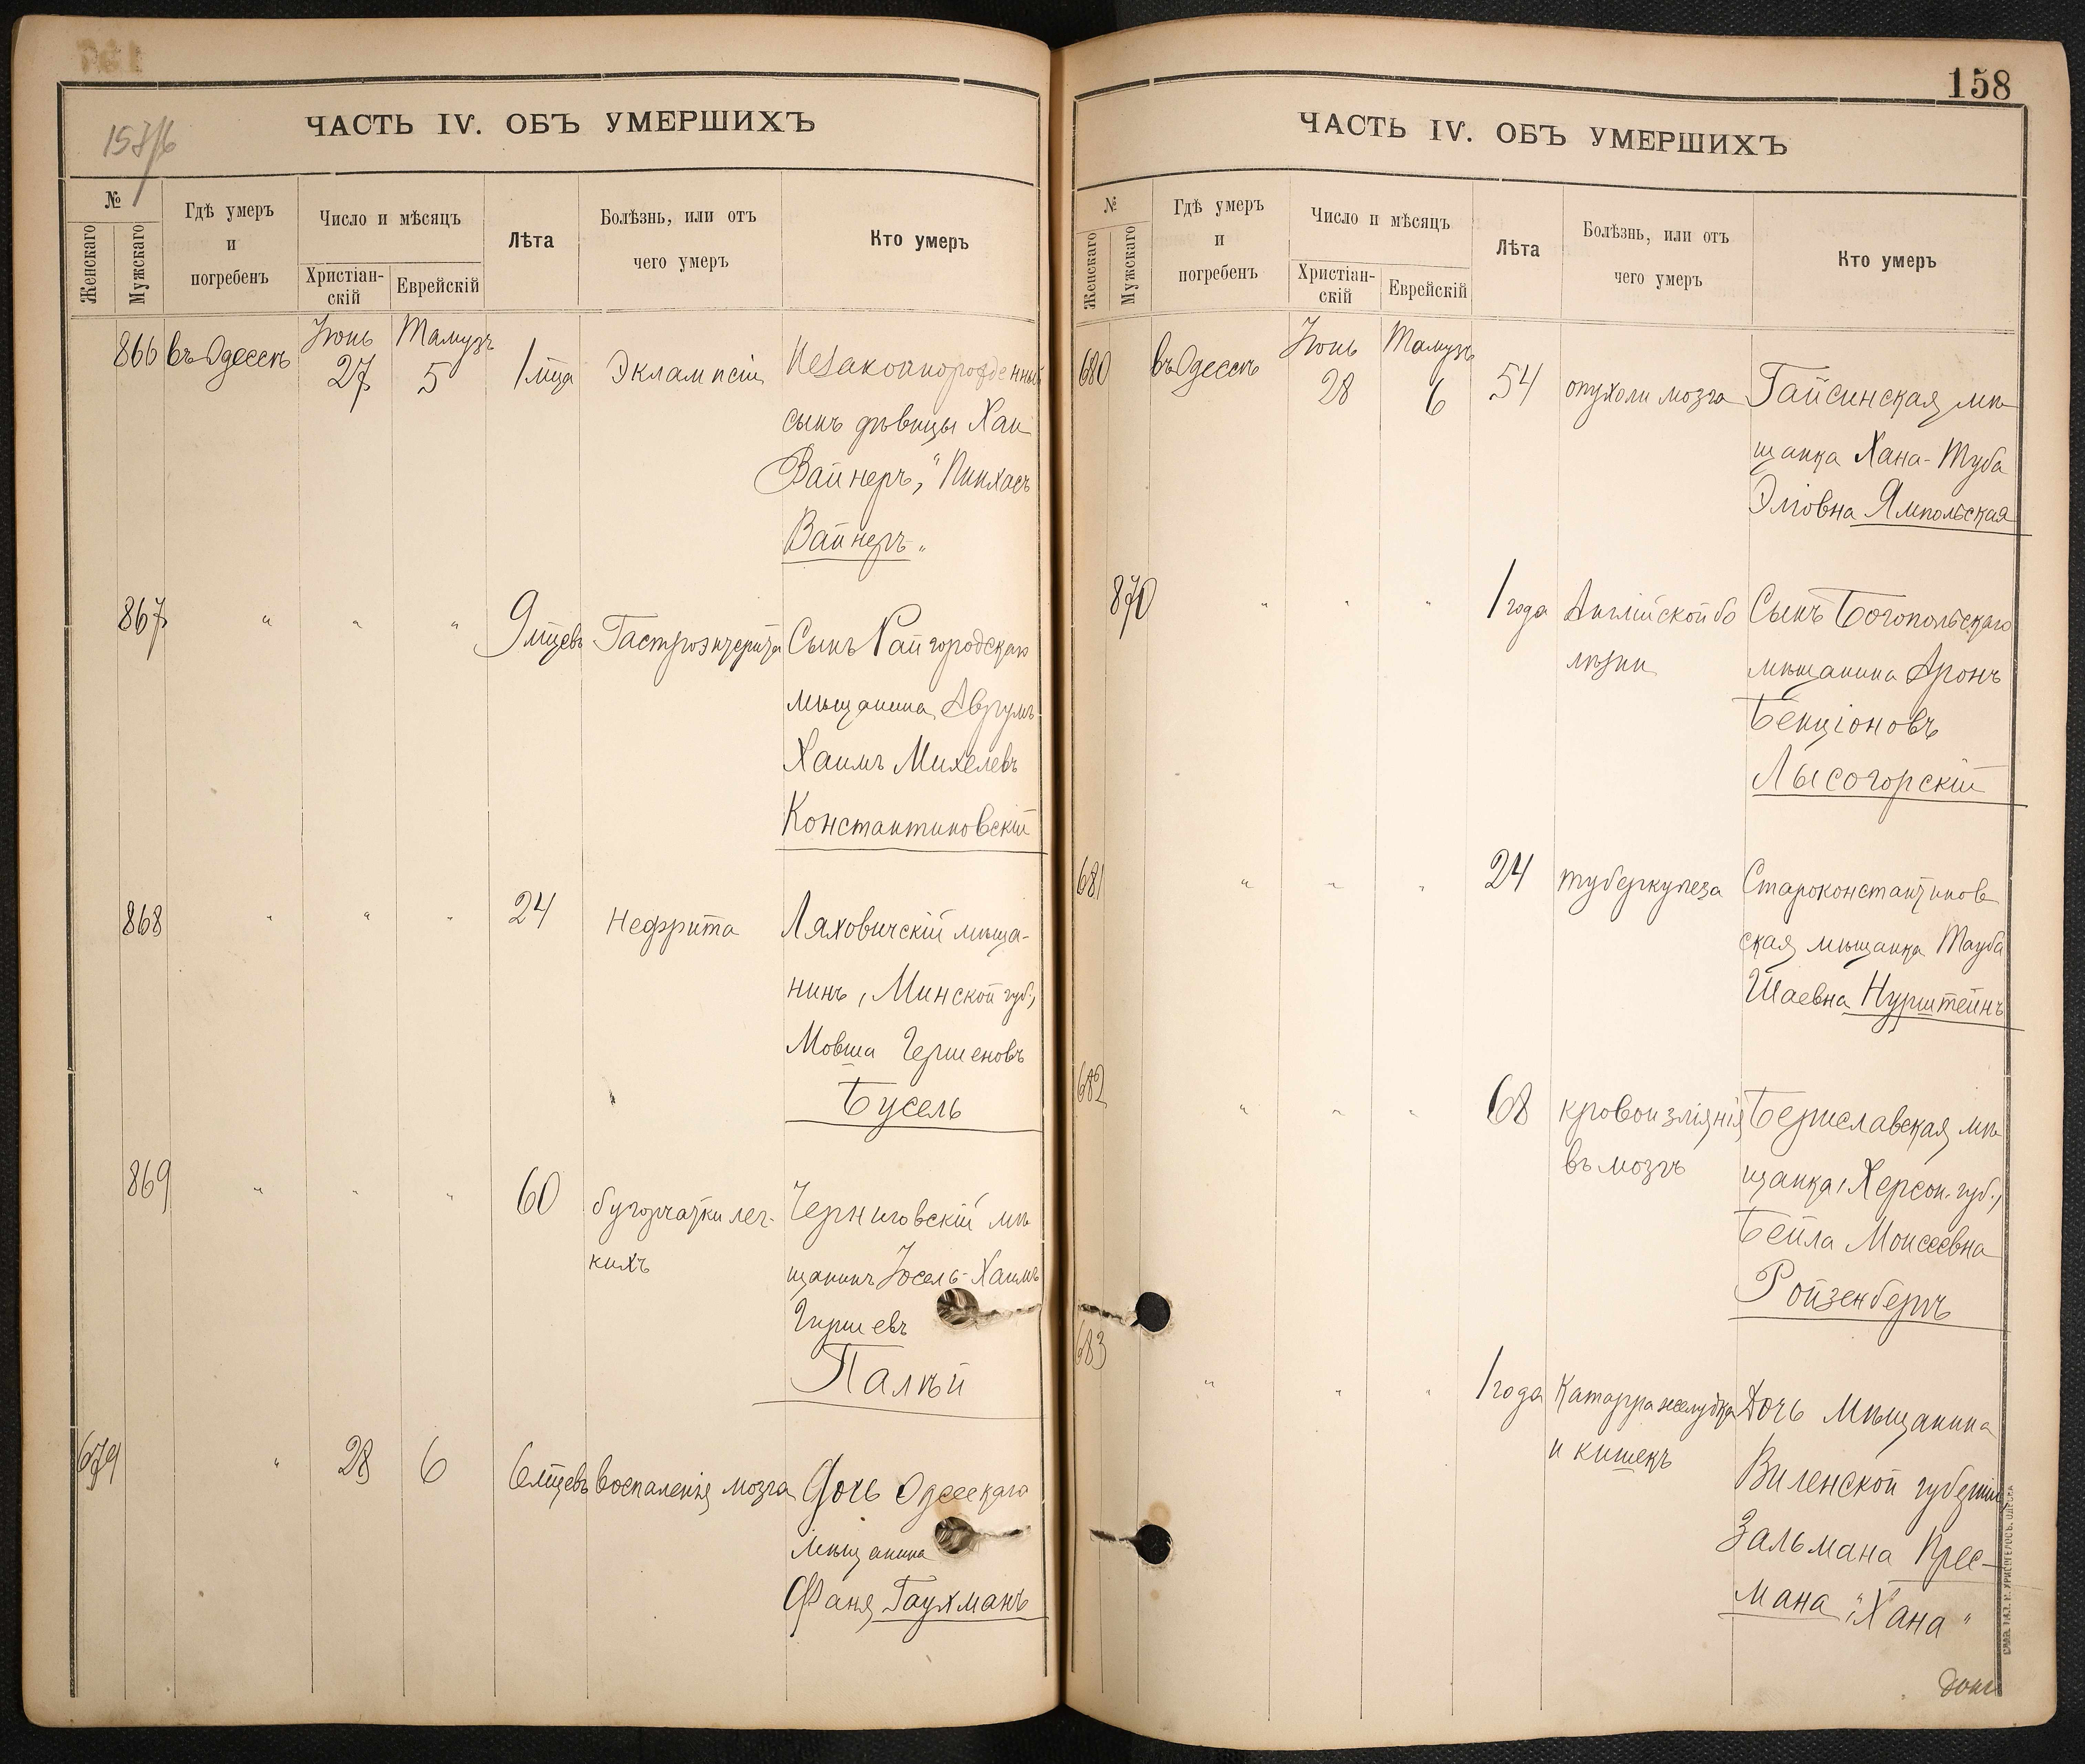 157/6
ЧАСТЬ IV. ОБЪ УМЕРШИХЪ
№
Женскаго
Мужскаго
Гдѣ умеръ
и
погребенъ
Число и мѣсяцъ
Христіан-
скій
Еврейскій
Лѣта
Болѣзнь, или отъ
чего умеръ
Кто умеръ
866 въ Одессѣ Іюнь 27 Тамузъ 5 1 мца Эклампсіи Незаконнорожденный
сынъ дѣвицы Хаи
Вайнеръ, "Пинхасъ
Вайнеръ"
867 " " " 9 мцевъ Гастроэнтерита Сынъ Райгородскаго
мѣщанина Аврумъ
Хаимъ Михелевъ
Константиновскій
868 " " " 24 Нефрита Ляховичскій мѣща-
нинъ, Минской губ.,
Мовша Гершеновъ
Бусель
869 " " " 60 бугорчатки лег- Черниговскій мѣ
кихъ
щанинъ Іосель-Хаимъ
Гиршевъ
Палѣй
679 " 28 6 6 мцевъ воспаленія мозга Дочь Одесскаго
мѣщанина
Фаня Гаухманъ
158
ЧАСТЬ IV. ОБЪ УМЕРШИХЪ
№
Женскаго
Мужскаго
Гдѣ умеръ
и
погребенъ
Число и мѣсяцъ
Христіан-
скій
Еврейскій
Лѣта
Болѣзнь, или отъ
чего умеръ
Кто умеръ
680 въ Одессѣ Іюнь 28 Тамузъ 6 54 опухоли мозга Гайсинская мѣ
щанка Хана-Туба
Эліовна Ямпольская
870 " " " 1 года Англійской бо Сынъ Богопольскаго
лѣзни
мѣщанина Аронъ
Бенціоновъ
Лысогорскій
681 " " " 24 туберкулеза Староконстантинов
ская мѣщанка Тауба
Шаевна Нурштейнъ
682 " " " 68 кровоизліянія Бериславская мѣ
въ мозгъ
щанка, Херсон. губ.,
Бейла Моисеевна
Ройзенбергъ
683 " " " 1 года Катарра желудка Дочь Мѣщанина
и кишекъ
Виленской губерніи
Зальмана Крес-
мана "Хана"